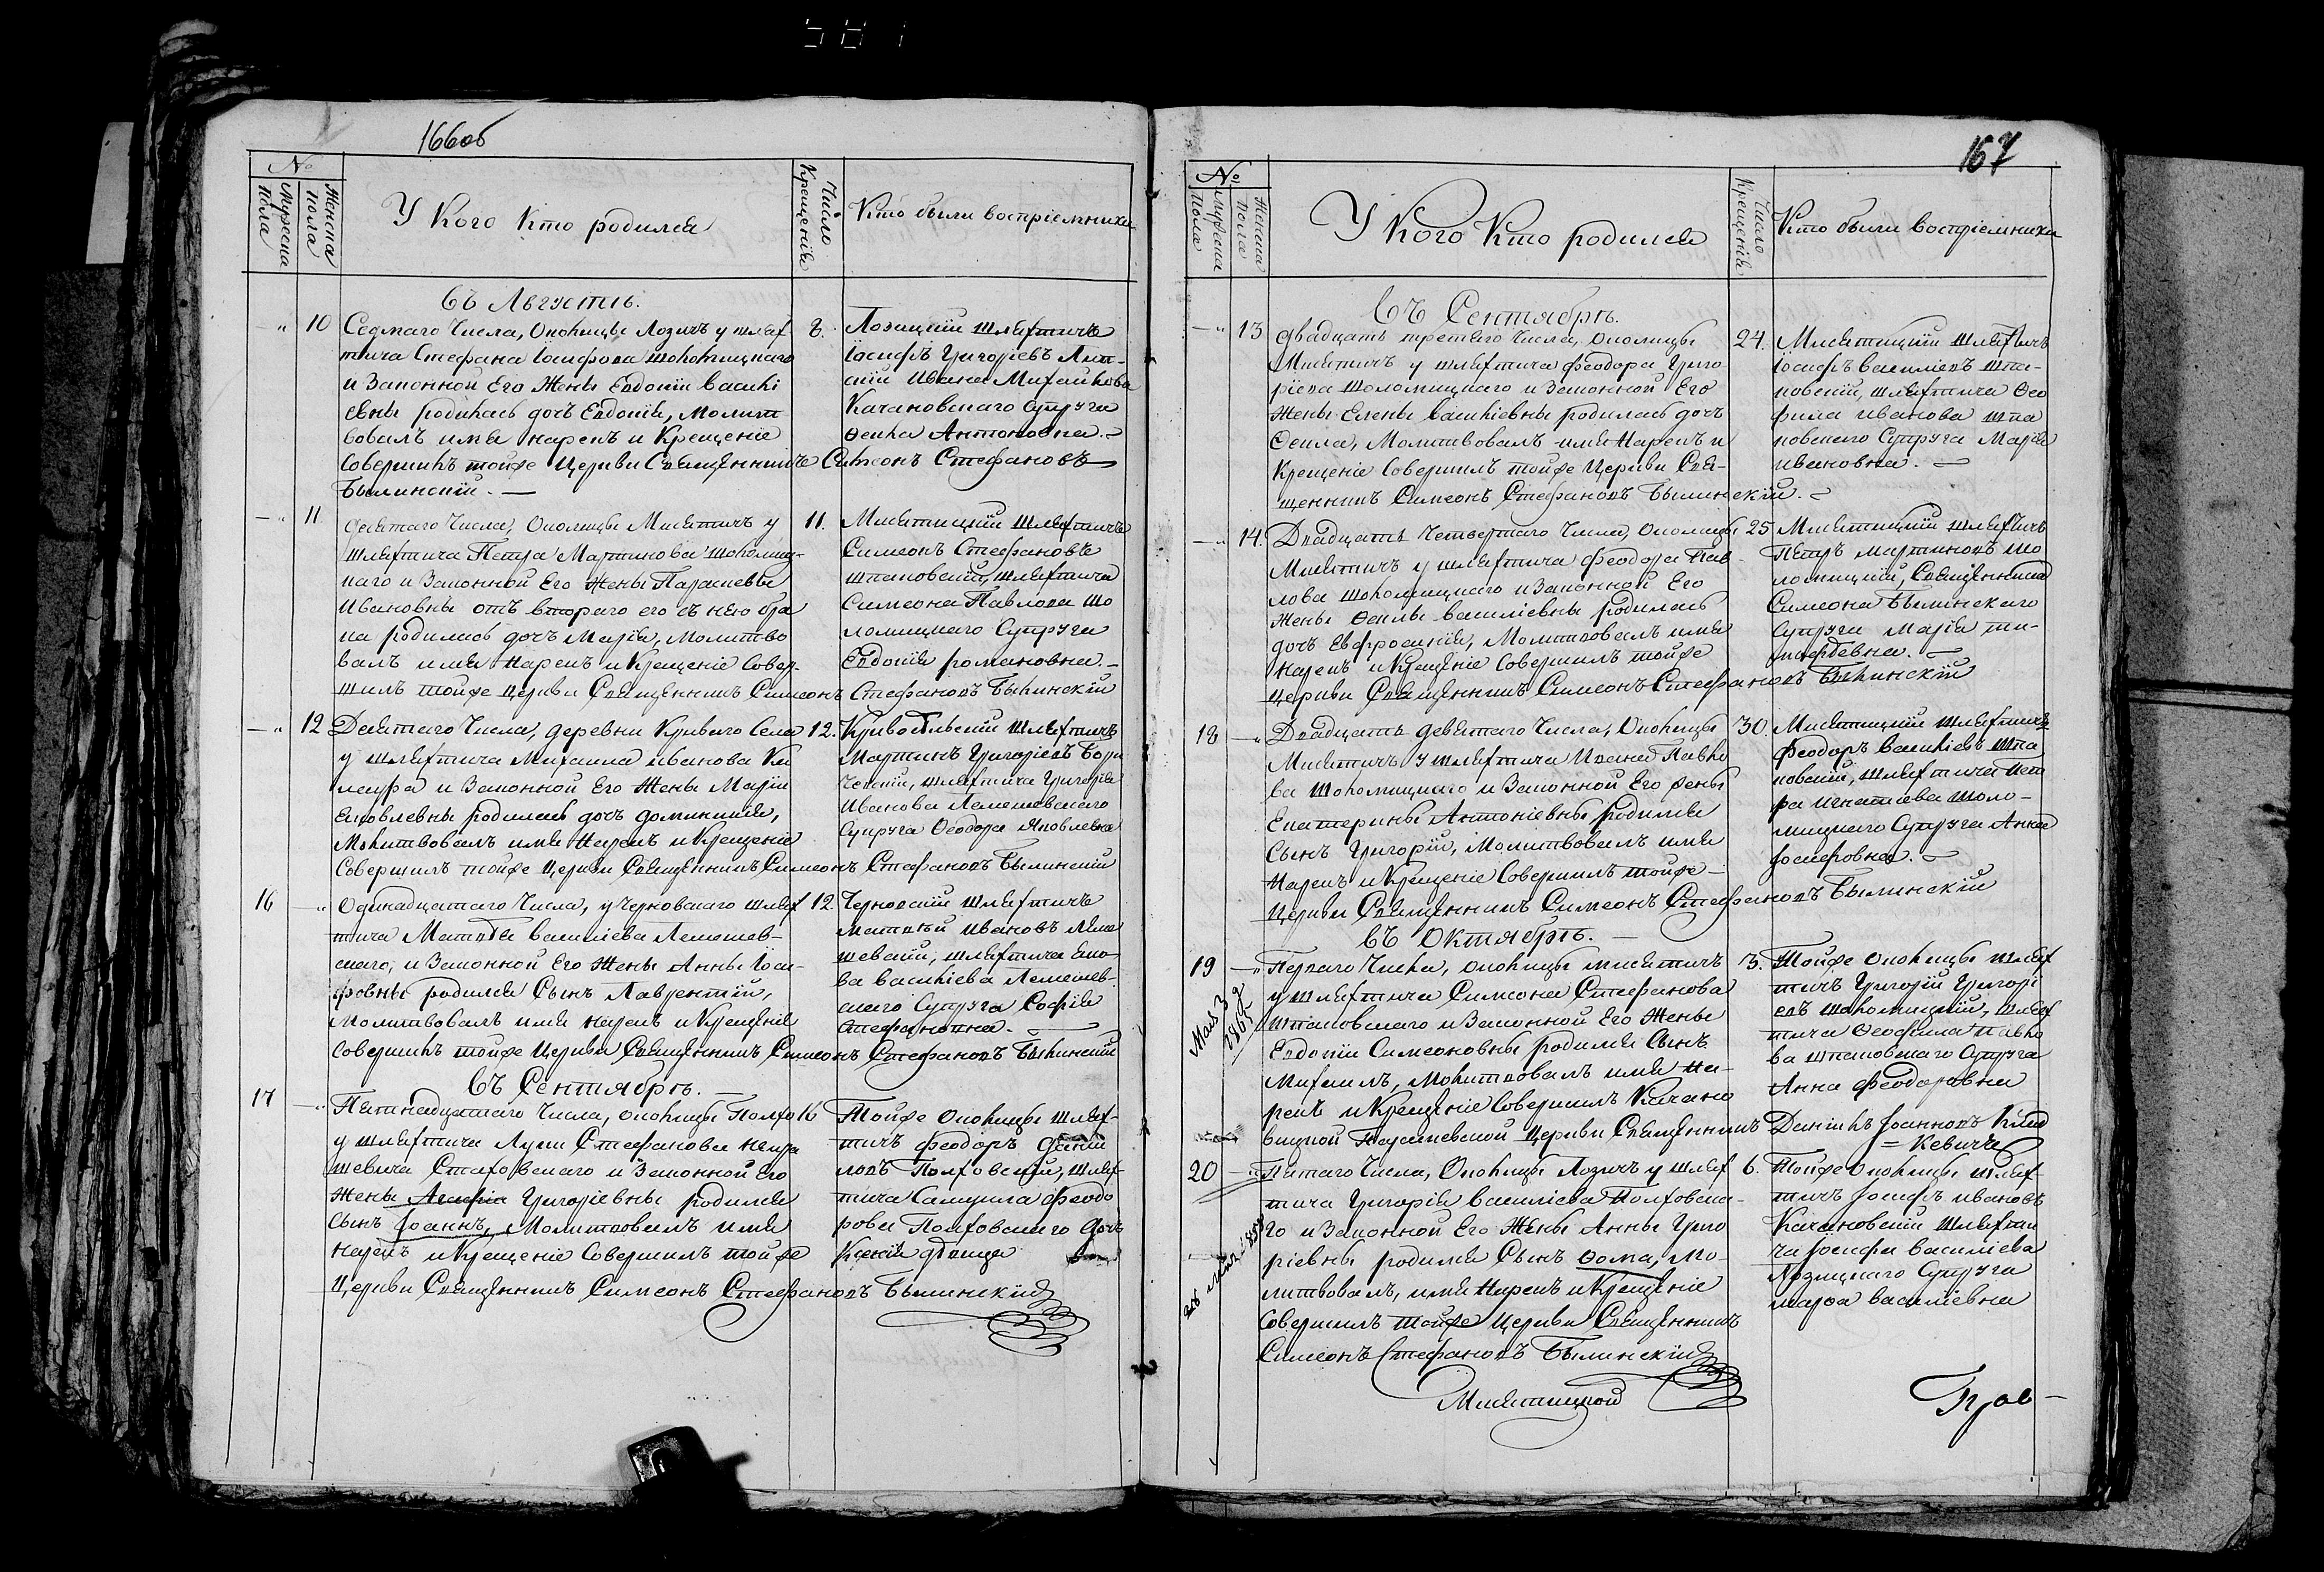 166об
№
Мужеска пола
Женска пола
У Кого Кто родился
Число Крещенія
Кто были воспріемники
Въ Августѣ.
10 Седмаго Числа, Околицы Лозичъ у шлях-
тича Стефана Іосифова Шоломицкаго
и Законной Его Жены Евдокіи Василі
евны родилась дочь Евдокія, Молит
вовалъ имя нарекъ и Крещеніе
Совершилъ тойже Церкви Священникъ Симеонъ Стефановъ
Былинскій. —
8.
Лозицкій Шляхтичъ
Іосифъ Григоріевъ
Ивана Михайлова
Качановскаго Супруга
Ѳекла Антоновна.
11 Девятаго Числа, Околицы Миситичъ у
Шляхтича Петра Мартинова Шоломиц-
каго и Законной Его Жены Параскевы
Ивановны отъ втораго его съ нею бра
ка родилась дочь Марія, Молитво
валъ имя нарекъ и Крещеніе Совер-
шилъ тойже Церкви Священникъ Симеонъ Стефановъ Былинскій
11.
Шляхтичъ
Симеонъ Стефановъ
Шпаковскій, шляхтича
Симеона Павлова Шо
ломицкаго Супруга
Евдокія Романовна.
12 Девятаго Числа, деревни Криваго Села
у шляхтича Михаила Иванова
и Законной Его Жены Маріи
Яковлевны родилась дочь Доминикія,
Молитвовалъ имя Нарекъ и Крещеніе
Совершилъ тойже Церкви Священникъ Симеонъ Стефановъ Былинскій
12.
Шляхтичъ
Мартинъ Григоріевъ
шляхтича Григорія
Иванова Лемешевскаго
Супруга Ѳеодора Яковлевна
16 Одинадцатаго Числа, у Черновскаго Шлях
тича Матвѣя Василіева Лемешев-
скаго, и Законной Его Жены Анны Іоси-
фовны родился Сынъ Лаврентій,
Молитвовалъ имя нарекъ и Крещеніе
Совершилъ тойже Церкви Священникъ Симеонъ Стефановъ Былинскій
12.
Черновскій Шляхтичъ
Матвѣй Ивановъ Леме
шевскій, шляхтича Яко
ва Василіева Лемешев-
скаго Супруга Софія
Стефановна.
Въ Сентябрѣ.
17 Пятнадцатаго Числа, околицы
у шляхтича Луки Стефанова
и Законной Его
Жены Григоріевны родился
Сынъ Іоаннъ, Молитвовалъ имя
нарекъ и Крещеніе Совершилъ тойже
Церкви Священникъ Симеонъ Стефановъ Былинскій
16
Тойже Околицы Шлях-
тичъ Феодоръ Даніи
ловъ Полховскій, Шлях-
тича Самуила Феодо
рова Полховскаго дочь
Ксенія дѣвица
167
№
Мужеска пола
Женска пола
У Кого Кто родился
Число Крещенія
Кто были воспріемники
Въ Сентябрѣ.
13 Двадцать третяго Числа, Околицы
Миситичъ у шляхтича Феодора Григо-
ріева Шоломицкаго и Законной Его
Жены Елены Василіевны родилась дочь
Ѳекла, Молитвовалъ имя Нарекъ и
Крещеніе Совершилъ тойже Церкви Свя-
щенникъ Симеонъ Стефановъ Былинскій.
24.
Шляхтичъ
Іосифъ Василіевъ Шпа-
ковскій, шляхтича Ѳео
фила Иванова Шпа
ковскаго Супруга Марія
Ивановна. —
14. Двадцать Четвертаго Числа, Околицы
Миситичъ у шляхтича Феодора Пав-
лова Шоломицкаго и Законной Его
Жены Ѳеклы Василіевны родилась
дочь Евфросинія, Молитвовалъ имя
нарекъ и Крещеніе Совершилъ тойже
Церкви Священникъ Симеонъ Стефановъ Былинскій
25
Шляхтичъ
Петръ Мартиновъ Шо
ломицкій, Священника
Симеона Былинскаго
Супруга Марія Ти-
мофѣевна.
18 Двадцать девятаго Числа, Околицы
Миситичъ у шляхтича Ивана Павло
ва Шоломицкаго и Законной Его Жены
Екатерины Антоніевны родился
Сынъ Григорій, Молитвовалъ имя
Нарекъ и Крещеніе Совершилъ тойже
Церкви Священникъ Симеонъ Стефановъ Былинскій
30.
Шляхтичъ
Феодоръ Василіевъ Шпа
ковскій, шляхтича Пет
ра Игнатіева Шоло-
мицкаго Супруга Анна
Іосифовна.
Въ Октябрѣ.
19 Перваго Числа, околицы Миситичъ
у шляхтича Симеона Стефанова
Шпаковскаго и Законной Его Жены
Евдокіи Симеоновны родился Сынъ
Михаилъ, Молитвовалъ имя На-
рекъ и Крещеніе Совершилъ Качано
вицкой Параскевской Церкви Священникъ Даніилъ Іоанновъ
= кевичъ
3.
Тойже околицы шлях
тичъ Григорій Григорі
евъ Шоломицкій, Шлях
тича Ѳеофила Павло
ва Шпаковскаго Супруга
Анна Феодоровна
Мая 3 д
1865
20 Пятаго Числа, Околицы Лозичъ у шлях
тича Григорія Василіева Полховска-
го и Законной Его Жены Анны Григо
ріевны родился Сынъ Ѳома, Мо-
литвовалъ, имя Нарекъ и Крещеніе
Совершилъ тойже Церкви Священникъ
Симеонъ Стефановъ Былинскій
6.
Тойже околицы Шлях
тичъ Іосифъ Ивановъ
Качановскій Шляхти
ча Іосифа Василіева
Лозицкаго Супруга
Марѳа Василіевна